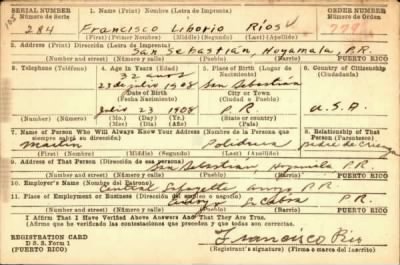 SERIAL NUMBER
Número de Serie
284
1. Name (Print) Nombre (Letra de Imprenta)
Francisco Liborio Ríos
(First) (Primer Nombre) (Middle) (Segundo) (Last) (Apellido)
ORDER NUMBER
Número de Orden
2. Address (Print) Dirección (Letra de Imprenta)
San Sebastián, Hoyamala, P.R.
(Number and street) (Número y calle) (Town) (Pueblo)
PUERTO RICO
3. Telephone (Teléfono)
4. Age in Years (Edad)
32 anos
23 de julio 1908
Date of Birth
(Fecha Nacimiento)
Julio 23 1908
(Mo.) (Day) (Yr.)
5. Place of Birth (Lugar de Nacimiento)
San Sebastián
City or Town
(Ciudad o Pueblo)
P.R
(State or country)
6. Country of Citizenship
(Ciudadanía)
U.S.A.
7. Name of Person Who Will Always Know Your Address (Nombre de la Persona que siempre sabrá su dirección)
Martin
(First) (Nombre) (Middle) (Segundo) (Last) (Apellido)
8. Relationship of That Person (Parentesco)
padre de crianza
9. Address of That Person (Dirección de esa persona)
San Sebastian Hoyamala P.R.
(Number and street) (Número y calle) (Town) (Pueblo)
10. Employer's Name (Nombre del Patrono)
Central Lafayette Arroyo P.R.
11. Place of Employment or Business (Dirección del empleo o negocio)
P.R.
(Number and street) (Número y calle) (Town) (Pueblo)
PUERTO RICO
I Affirm That I Have Verified Above Answers And That They Are True.
(Afirmo que he verificado las contestaciones que preceden y que todas son ciertas).
REGISTRATION CARD
D S S. Form 1
(PUERTO RICO)
Francisco Rios
(Registrant's signature) (Firma del inscrito)